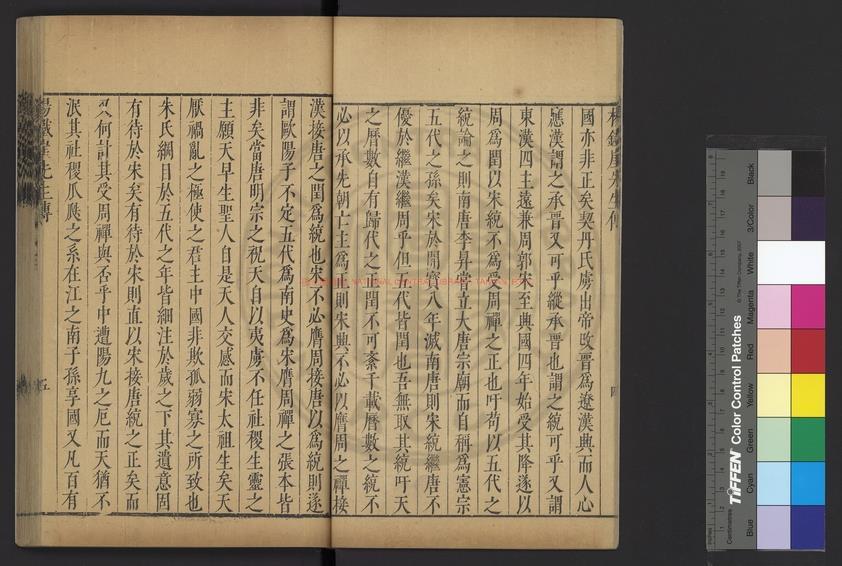 國亦非正矣契丹氏虜出帝改晉爲遼漢興而人心
應漢謂之承晉又可乎縱承晉也謂之統可乎又謂
東漢四主遠兼周郭宋至興國四年始受其降遂以
周爲閏以宋統不爲受周禪之正也吁苟以五代之
統論之則南唐李昇嘗立大唐宗廟而自稱爲憲宗
五代之孫矣宋於開寶八年滅南唐則宋統繼唐不
優於繼漢繼周乎但五代皆閏也吾無取其統吁天
之曆數自有歸代之正閏不可紊千載曆數之統不
必以承先朝亡主爲正則宋興不必以膺周之禪接
漢接唐之閏爲統也宋不必膺周接唐以爲統則遂
謂歐陽子不定五代爲南史爲宋膺周禪之張本皆
非矣當唐明宗之祝天自以夷虜不任社稷生靈之
主願天早生聖人自是天人交感而宋太祖生矣天
厭禍亂之極使之君主中國非欺孤弱寡之所致也
朱氏綱目於五代之年皆細注於歲之下其遺意固
有待於宋矣有待於宋則直以宋接唐統之正矣而
又何計其受周禪與否乎中遭陽九之厄而天猶不
泯其社稷瓜瓞之系在江之南子孫享國又凡百有
楊鐵崖先生傳
五
NATIONAL CENTRAL LIBRARY
Centimetres
TIFFEN Color Control Patches
© The Tiffen Company, 2007
Blue
Cyan
Green
Yellow
Red
Magenta
White
3/Color
Black